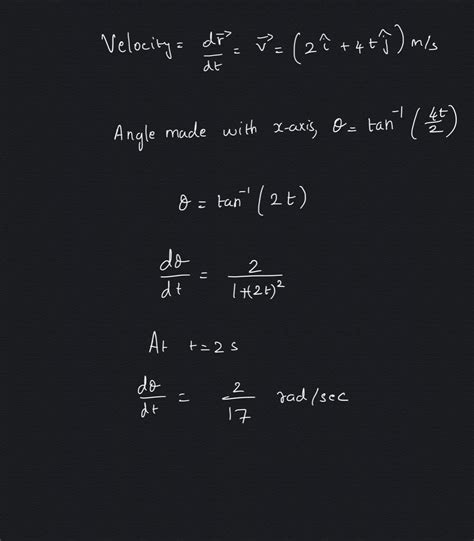 Velocity = dr⃗/dt = v⃗ = (2î + 4tĵ) m/s
Angle made with x-axis, θ = tan⁻¹(4t/2)
θ = tan⁻¹(2t)
dθ/dt = 2/1+(2t)²
At t=2s
dθ/dt = 2/17 rad/sec